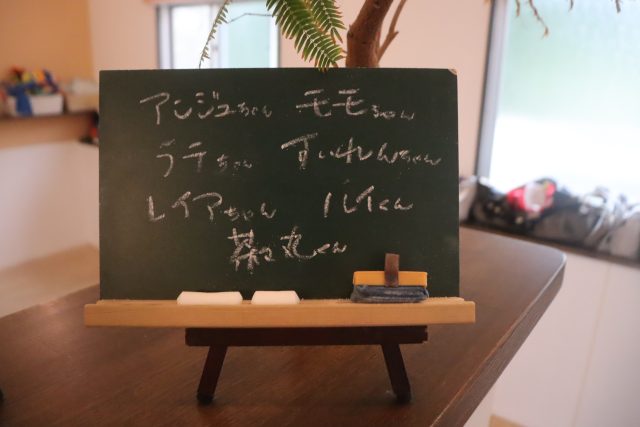 アンジュちゃん モモちゃん
ララちゃん すいれんちゃん
レイアちゃん ルイくん
茶々丸くん